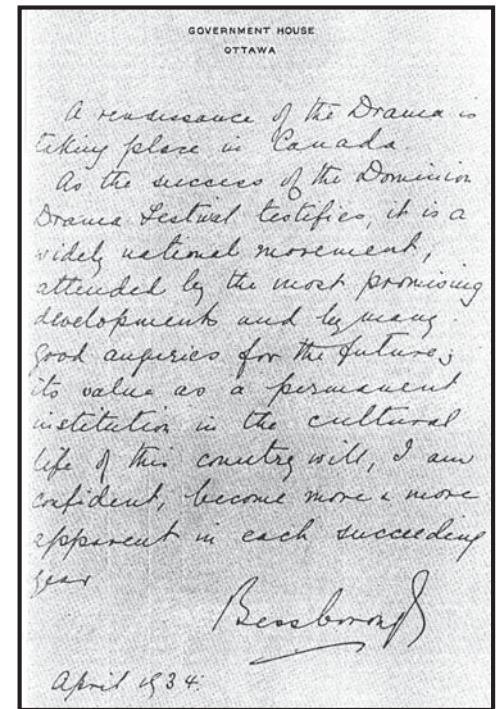 GOVERNMENT HOUSE
OTTAWA
A renaissance of the Drama is
taking place in Canada.
As the success of the Dominion
Drama Festival testifies, it is a
widely national movement,
attended by the most promising
developments and by many
good auguries for the future;
its value as a permanent
institution in the cultural
life of this country will, I am
confident, become more & more
apparent in each succeeding
year
Bessborough
April 1934.